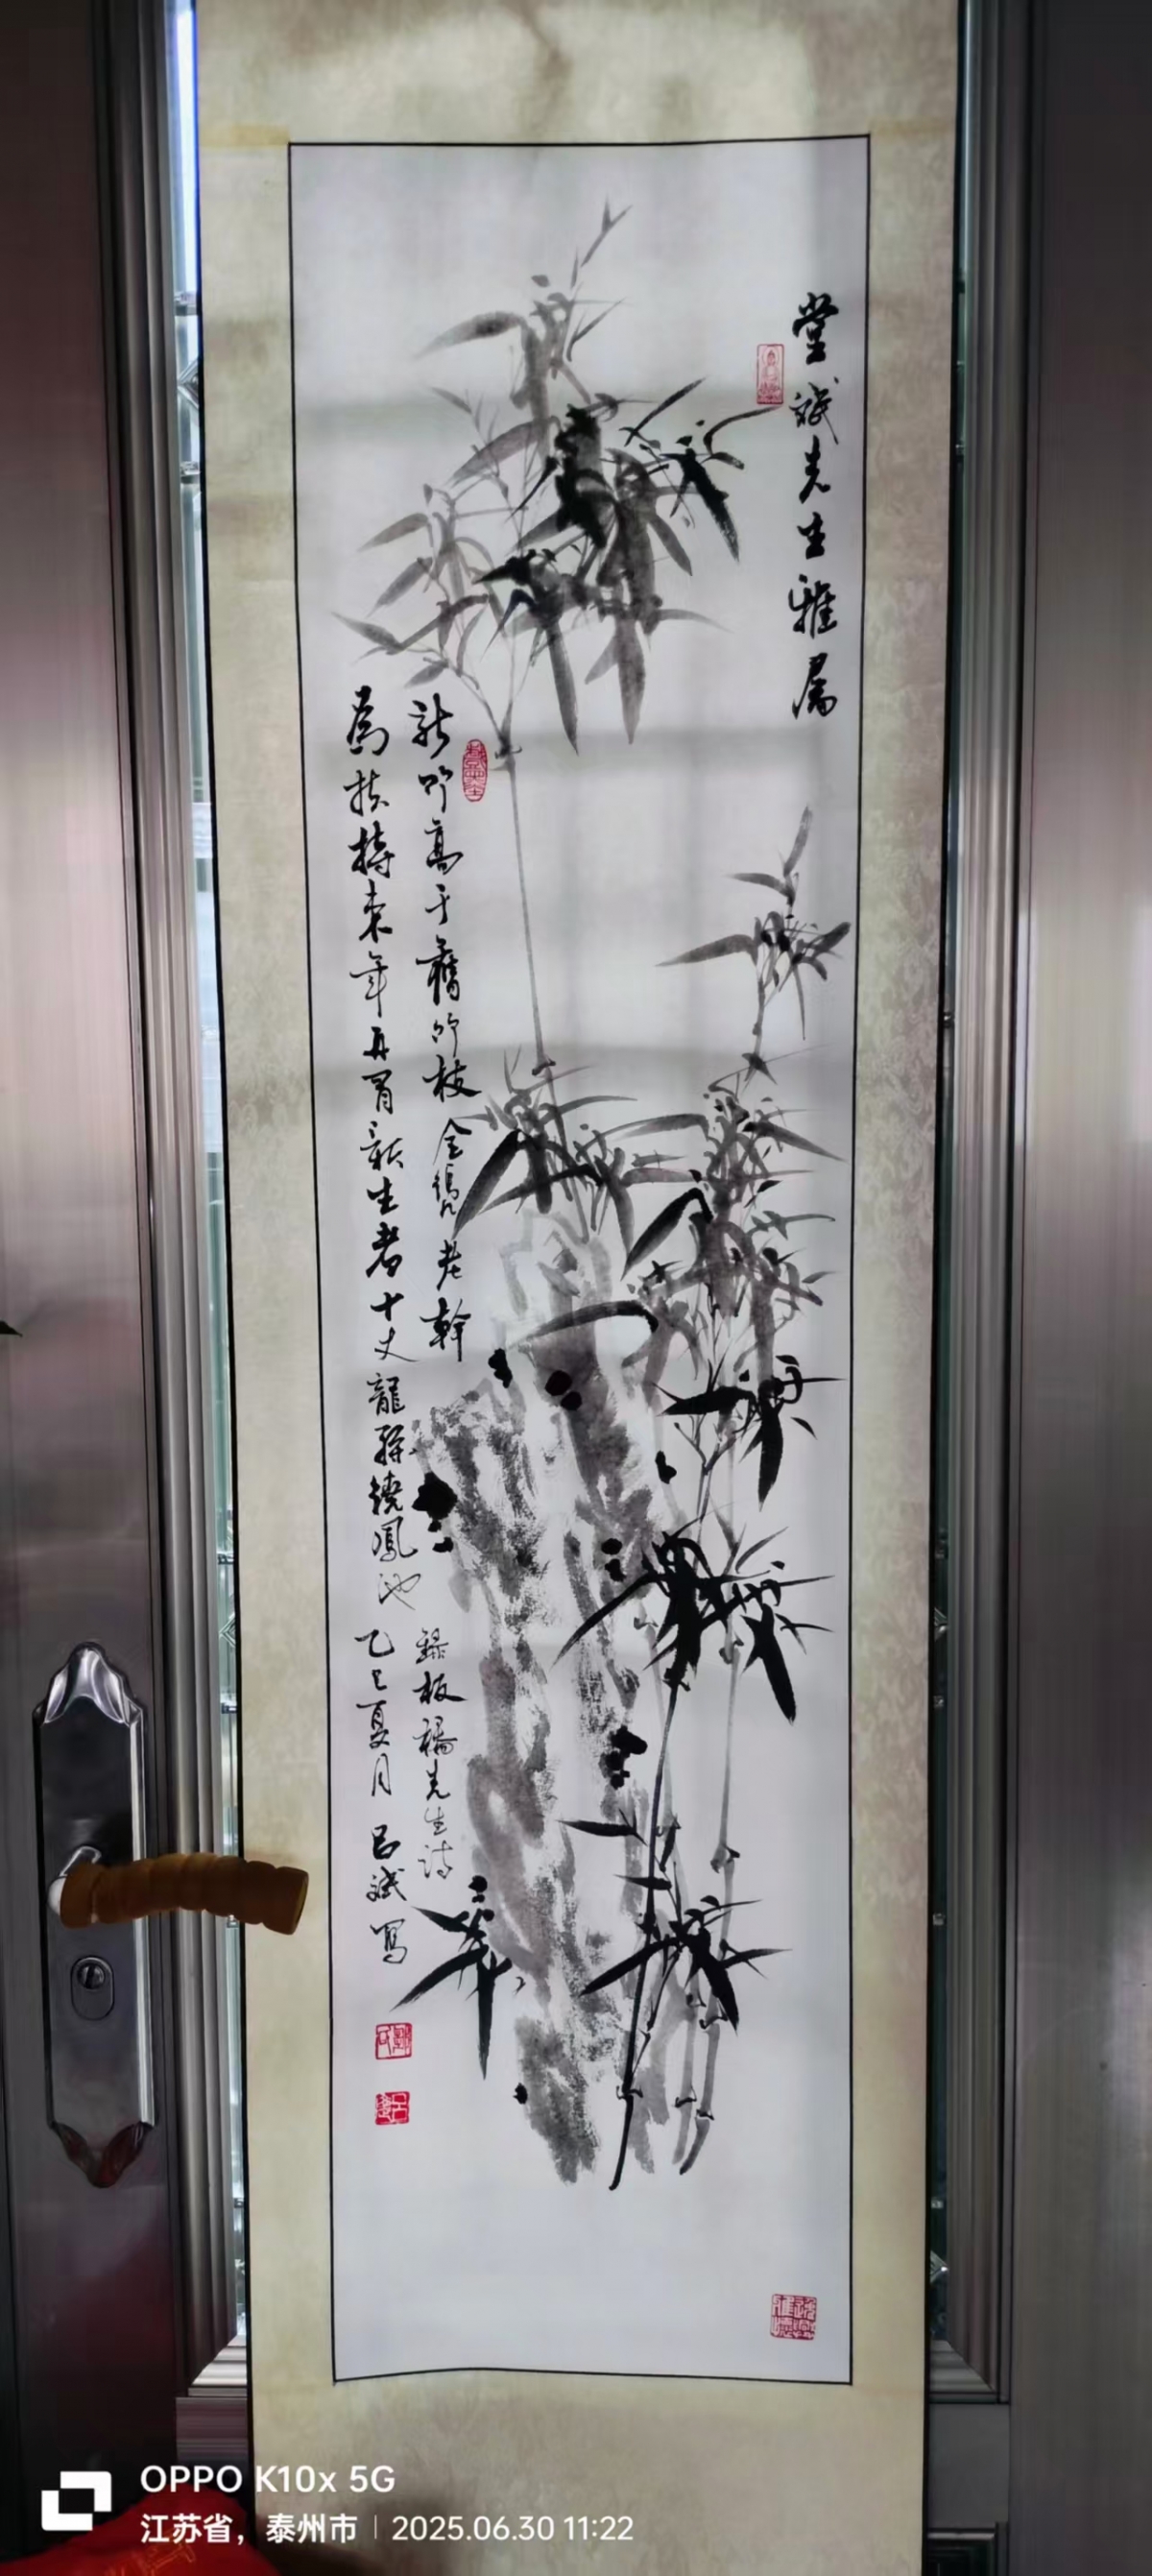 堂斌先生雅屬
新竹高于舊竹枝全憑老幹
為扶持來年再有新生者十丈龍孫繞鳳池
錄板橋先生詩
乙巳夏月呂斌寫
OPPO K10x 5G
江苏省，泰州市 | 2025.06.30 11:22